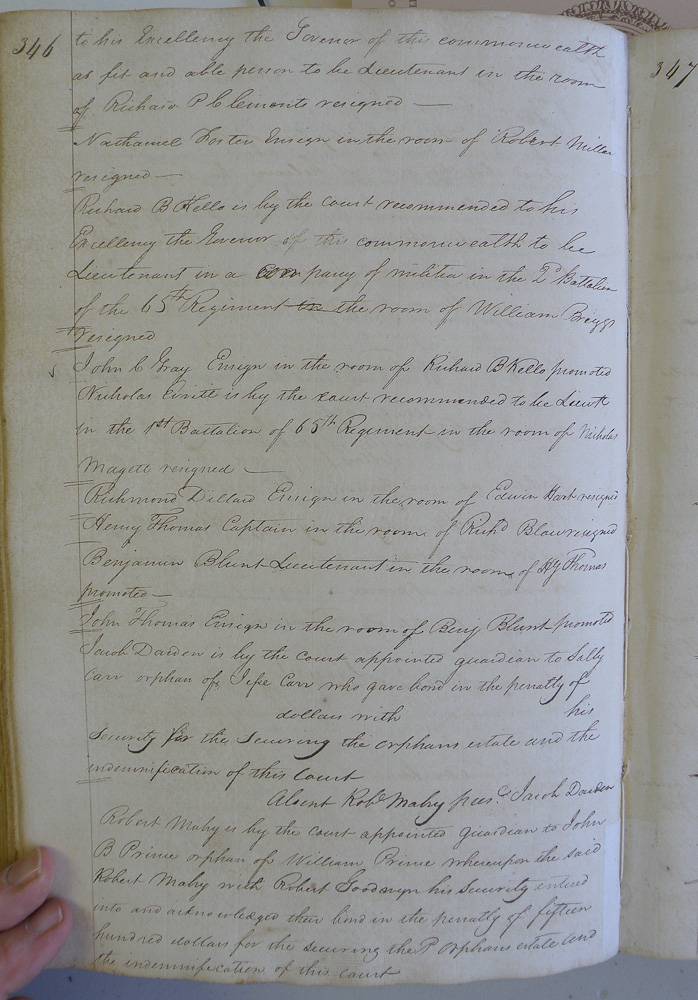 346
to his Excellency the Govenor of this commonwealth
as fit and able person to be Lieutenant in the room
of Richard P Clements resigned —
Nathaniel Foster Ensign in the room of Robert Miller
resigned —
Richard B Kello is by the court recommended to his
Excellency the Govenor of this commonwealth to be
Lieutenant in a company of militia in the 2d Battalion
of the 65th Regiment in the room of William Briggs
resigned
John C Gray Ensign in the room of Richard B Kello promoted
Nicholas is by the court recommended to be Lieut
in the 1st Battalion of 65th Regiment in the room of Nicholas
Magett resigned —
Richmond Dillard Ensign in the room of Edwin Hart resigned
Henry Thomas Captain in the room of Richd Blow resigned
Benjamin Blunt Lieutenant in the room of Hy Thomas
promoted —
John Thomas Ensign in the room of Benj Blunt promoted
Jacob Darden is by the court appointed guardian to Sally
Carr orphan of Carr who gave bond in the penalty of
dollars with his
Security for the Securing the orphans estate and the
indemnification of this Court
Absent Robt Mabry Jacob Darden
Robert Mabry is by the court appointed guardian to John
B Prince orphan of William Prince whereupon the said
Robert Mabry with Robert Goodwyn his security entered
into and acknowledged their bond in the penalty of fifteen
hundred dollars for the securing the orphans estate and
the indemnification of this court
347